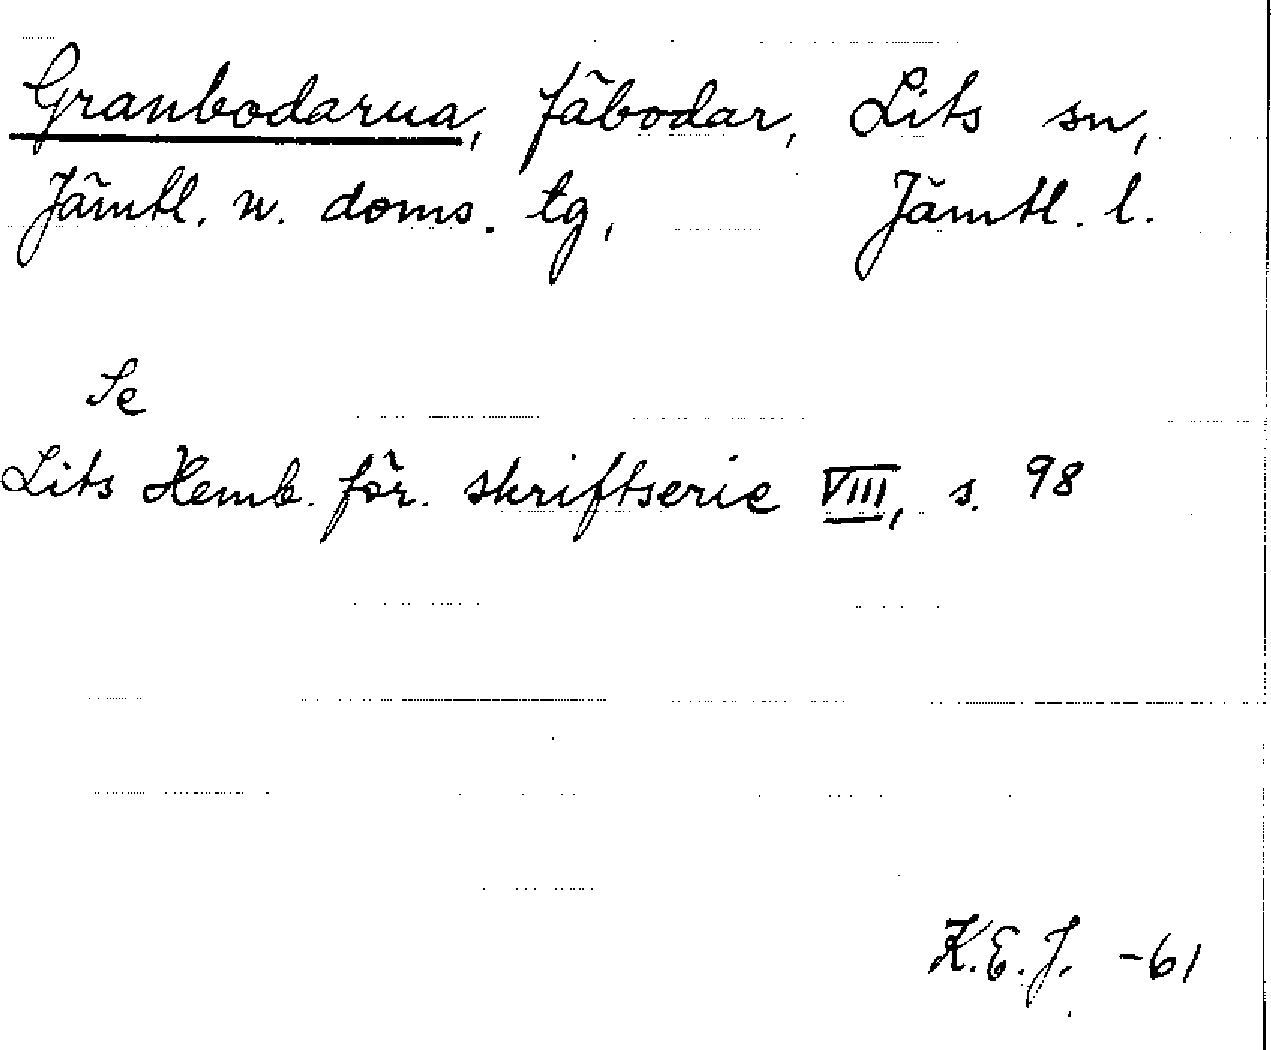 Granbodarna, fäbodar, Lits sn,
Jämtl. n. doms. tg, Jämtl. l.
Se
Lits Hemb. för. skriftserie VIII, s. 98
K.E.J. -61